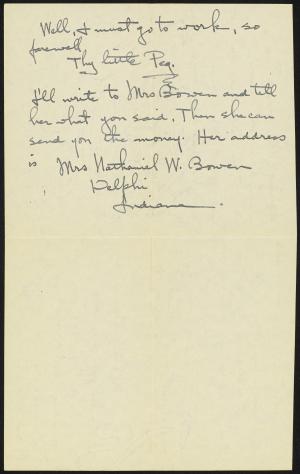 Well, I must go to work, so
farewell
Thy little Peg.
I'll write to Mrs Bowen and tell
her what you said, Then she can
send you the money. Her address
is Mrs Nathaniel W. Bowen
Delphi
Indiana.